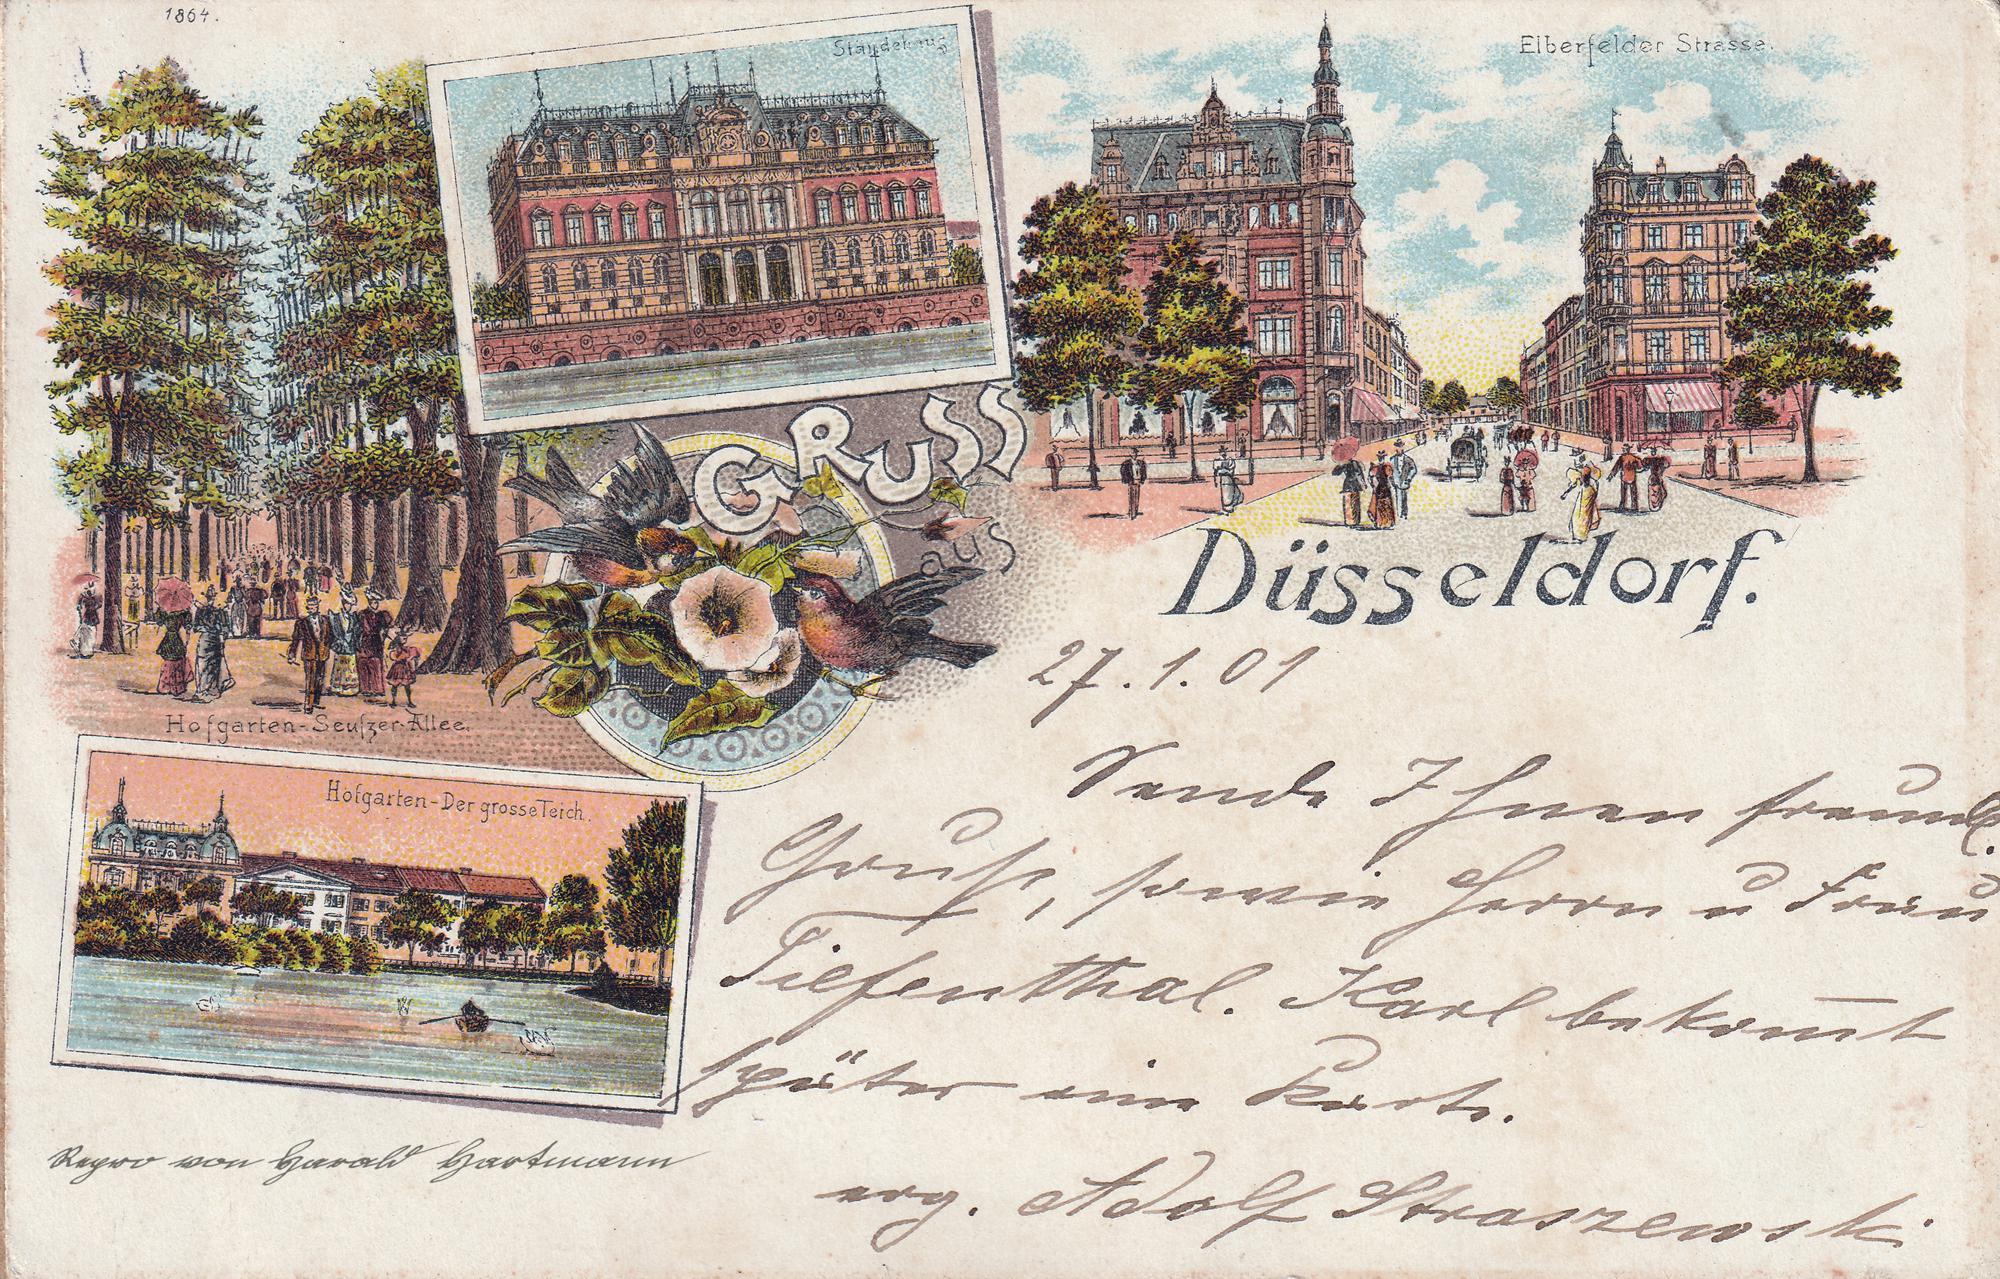 1864.
Ständehaus
Elberfelder Strasse.
GRUSS
aus
Düsseldorf.
Hofgarten-Seufzer-Allee.
Hofgarten-Der grosse Teich.
27.1.01
Sende Ihnen freundl.
Gruß, sowie Herrn u Frau
Tiefenthal. Karl bekom̅t
später eine Karte.
erg. Adolf Straszewski
Repro von Harald Hartmann